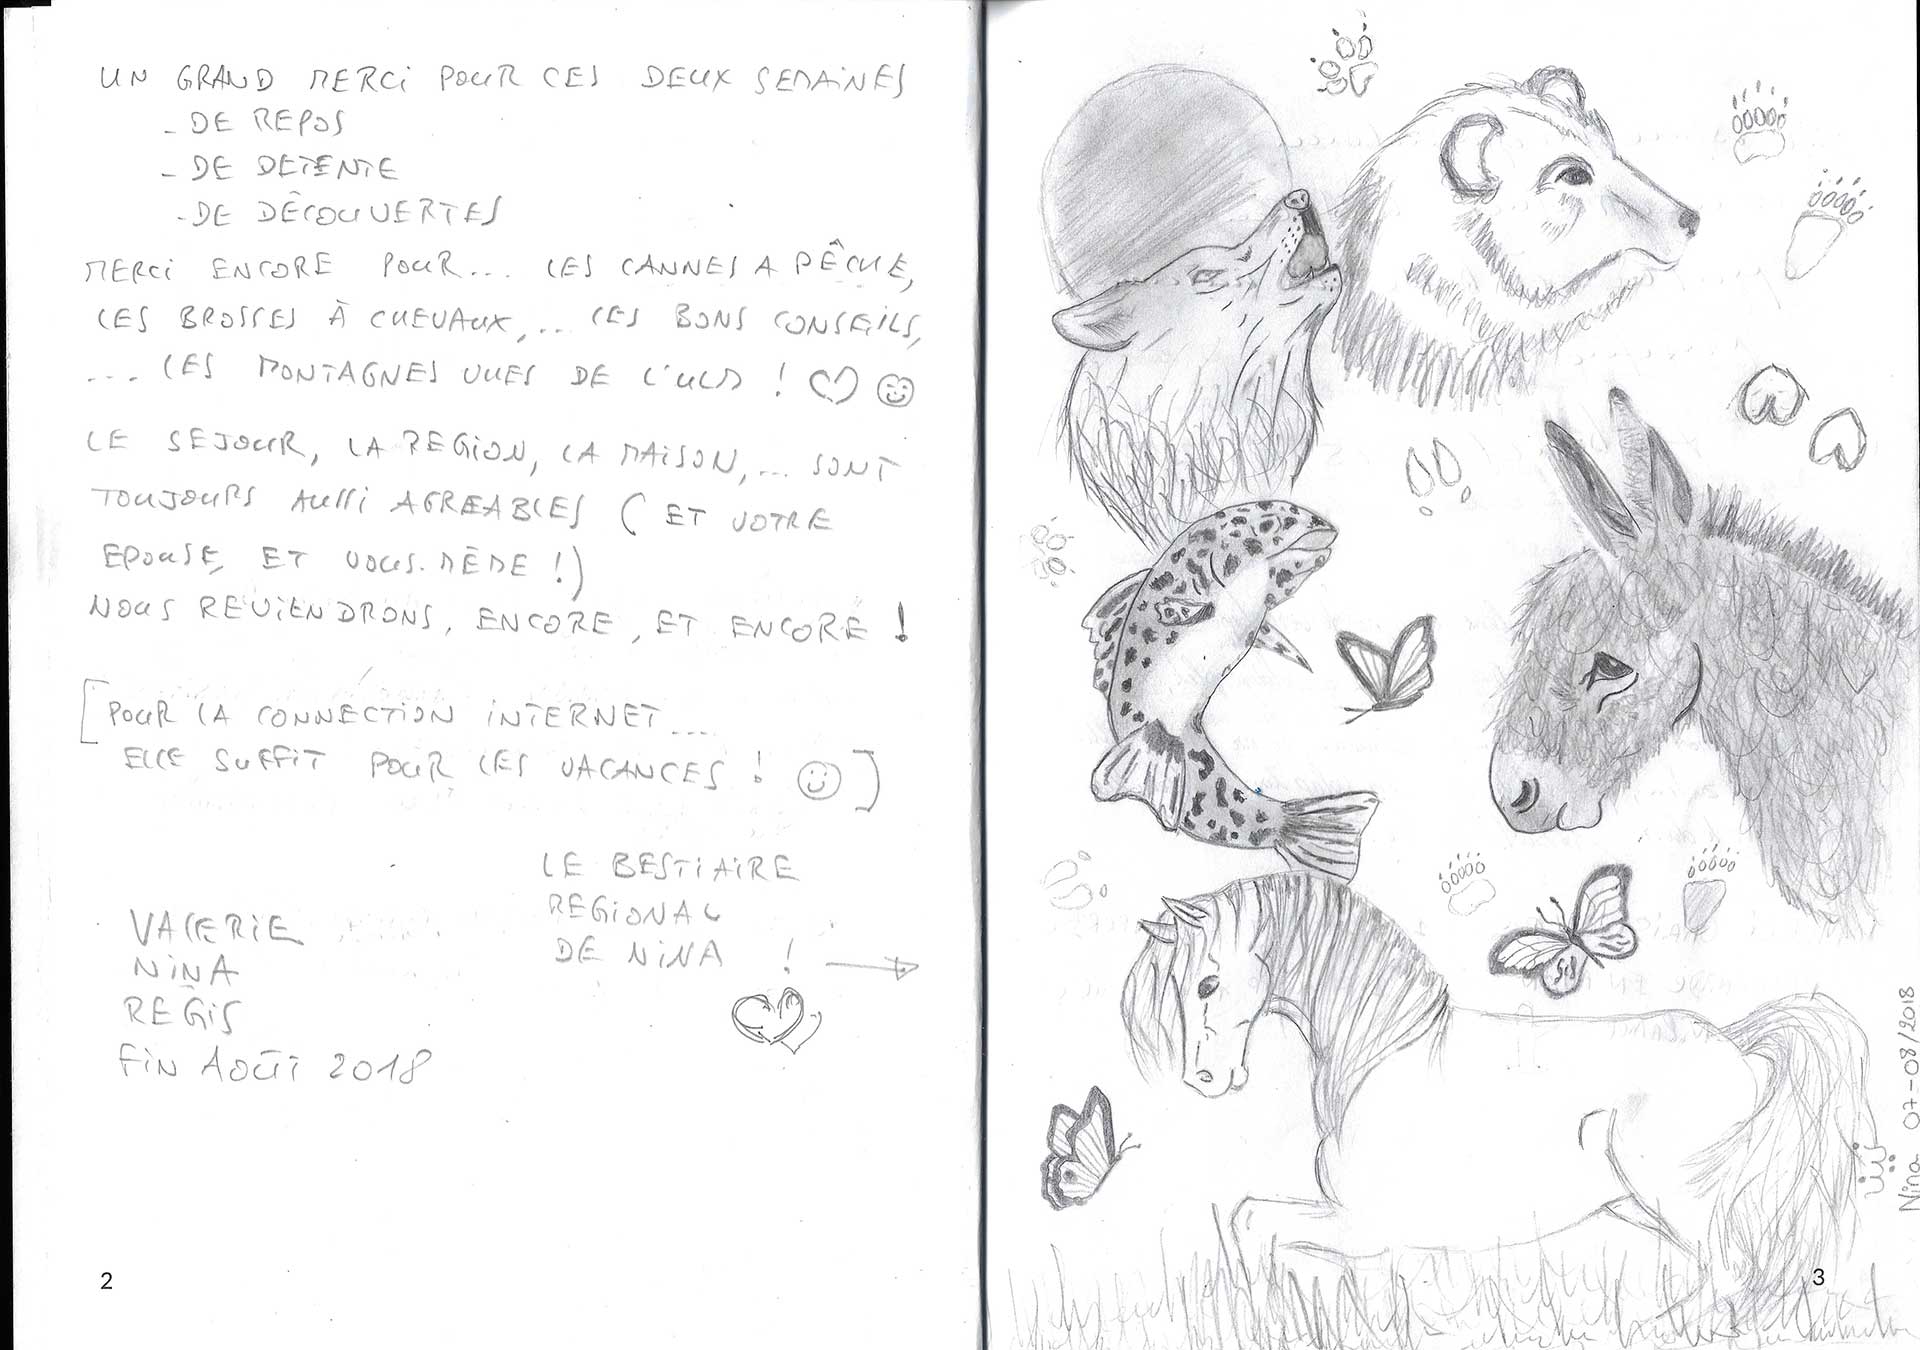 UN GRAND MERCI POUR CES DEUX SEMAINES
- DE REPOS
- DE DETENTE
- DE DÊCOUVERTES
MERCI ENCORE POUR... LES CANNES A PÊCHE,
LES BROSSES À CHEVAUX,... LES BONS CONSEILS,
... LES MONTAGNES VUES DE L'ULM !
LE SEJOUR, LA REGION, LA MAISON,... SONT
TOUJOURS AUSSI AGREABLES ( ET VOTRE
EPOUSE, ET VOUS-MÊME !)
NOUS REVIENDRONS, ENCORE, ET ENCORE !
[ POUR LA CONNECTION INTERNET...
ELLE SUFFIT POUR LES VACANCES ! ]
LE BESTIAIRE
REGIONAL
DE NINA !
VALERIE
NINA
REGIS
FIN AOÛT 2018
2
Nina 07-08/2018
3